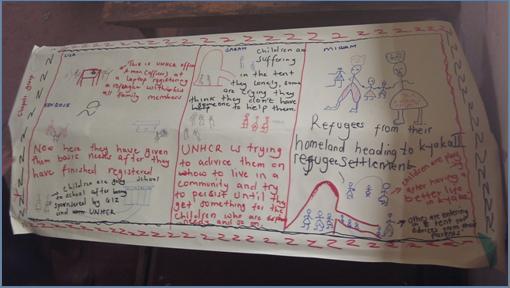 LISA
* This is UNHCR office
A man (officer) at
a laptop registering
a refugee with
all family members
Now here they have given
them basic needs after they
have finished registered
Children are
to school after
sponsored by GIZ
and UNHCR
school
SARAH
children are
suffering
in the tent
they lonely, some
are crying they
think they don't have
someone to help them.
UNHCR is trying
to advice them on
whow to live in a
community and try
to decide until they
get something for the
children who are
MIRIAM
Refugees from their
homeland heading to kyaka II
refugee settlement
children are
after having a
better life
in kyaka.
Others are entering
a tent
advices from their
parents